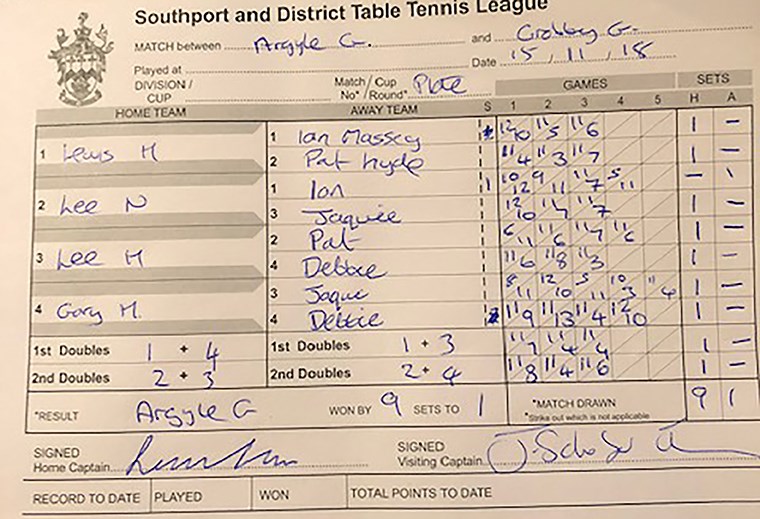 Southport and District Table Tennis League
MATCH between Argyle G. and Crosby G.
Played at Date 15/11/18
DIVISION / CUP Match/Cup No*/Round* Plate GAMES SETS
HOME TEAM AWAY TEAM S 1 2 3 4 5 H A
1 Lewis H 1 Ian Massey 12/10 11/5 11/6 1 –
2 Pat Hyde 11/4 11/3 11/7 1 –
2 Lee N 1 Ian 1 10/12 9/11 11/7 5/11 – 1
3 Jaquie 12/10 11/7 11/7 1 –
3 Lee H 2 Pat 6/11 11/6 11/7 11/6 1 –
4 Debbie 11/6 11/8 11/3 1 –
4 Gary M. 3 Jaqui 8/11 12/10 5/11 10/3 11/4 1 –
4 Debbie 11/9 11/13 11/4 12/10 1 –
1st Doubles 1 + 4 1st Doubles 1 + 3 11/7 11/4 11/4 1 –
2nd Doubles 2 + 3 2nd Doubles 2 + 4 11/8 11/4 11/6 1 –
*RESULT Argyle G WON BY 9 SETS TO 1 *MATCH DRAWN 9 1
*Strike out which is not applicable
SIGNED Home Captain SIGNED Visiting Captain
RECORD TO DATE PLAYED WON TOTAL POINTS TO DATE